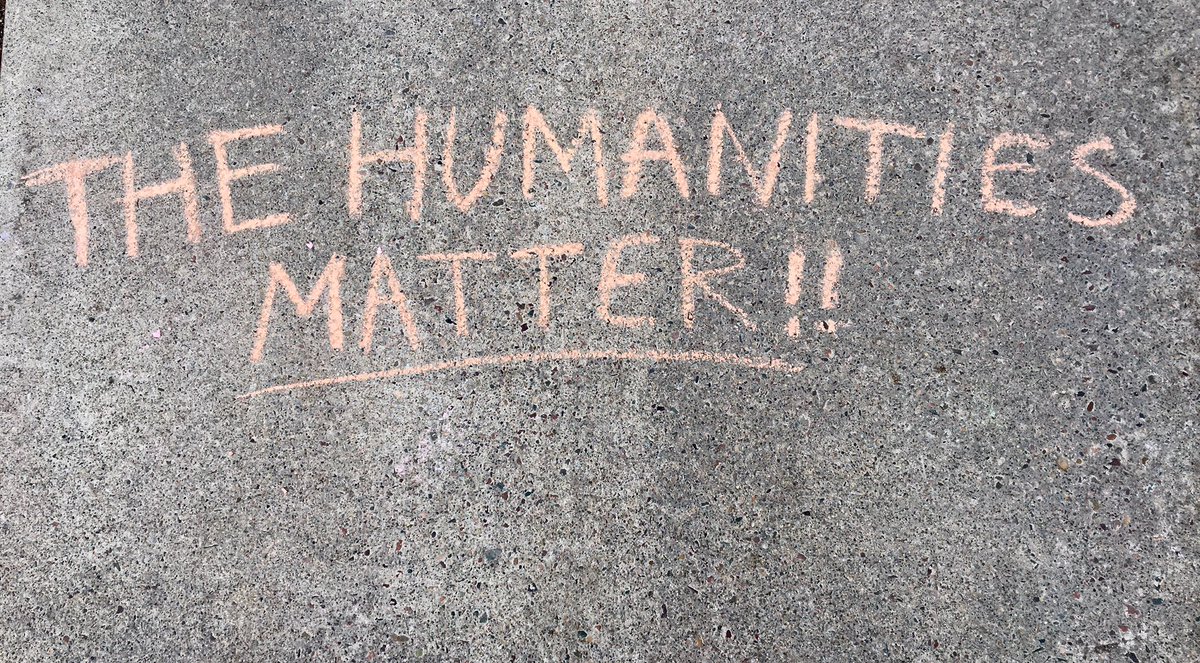 THE HUMANITIES
MATTER!!